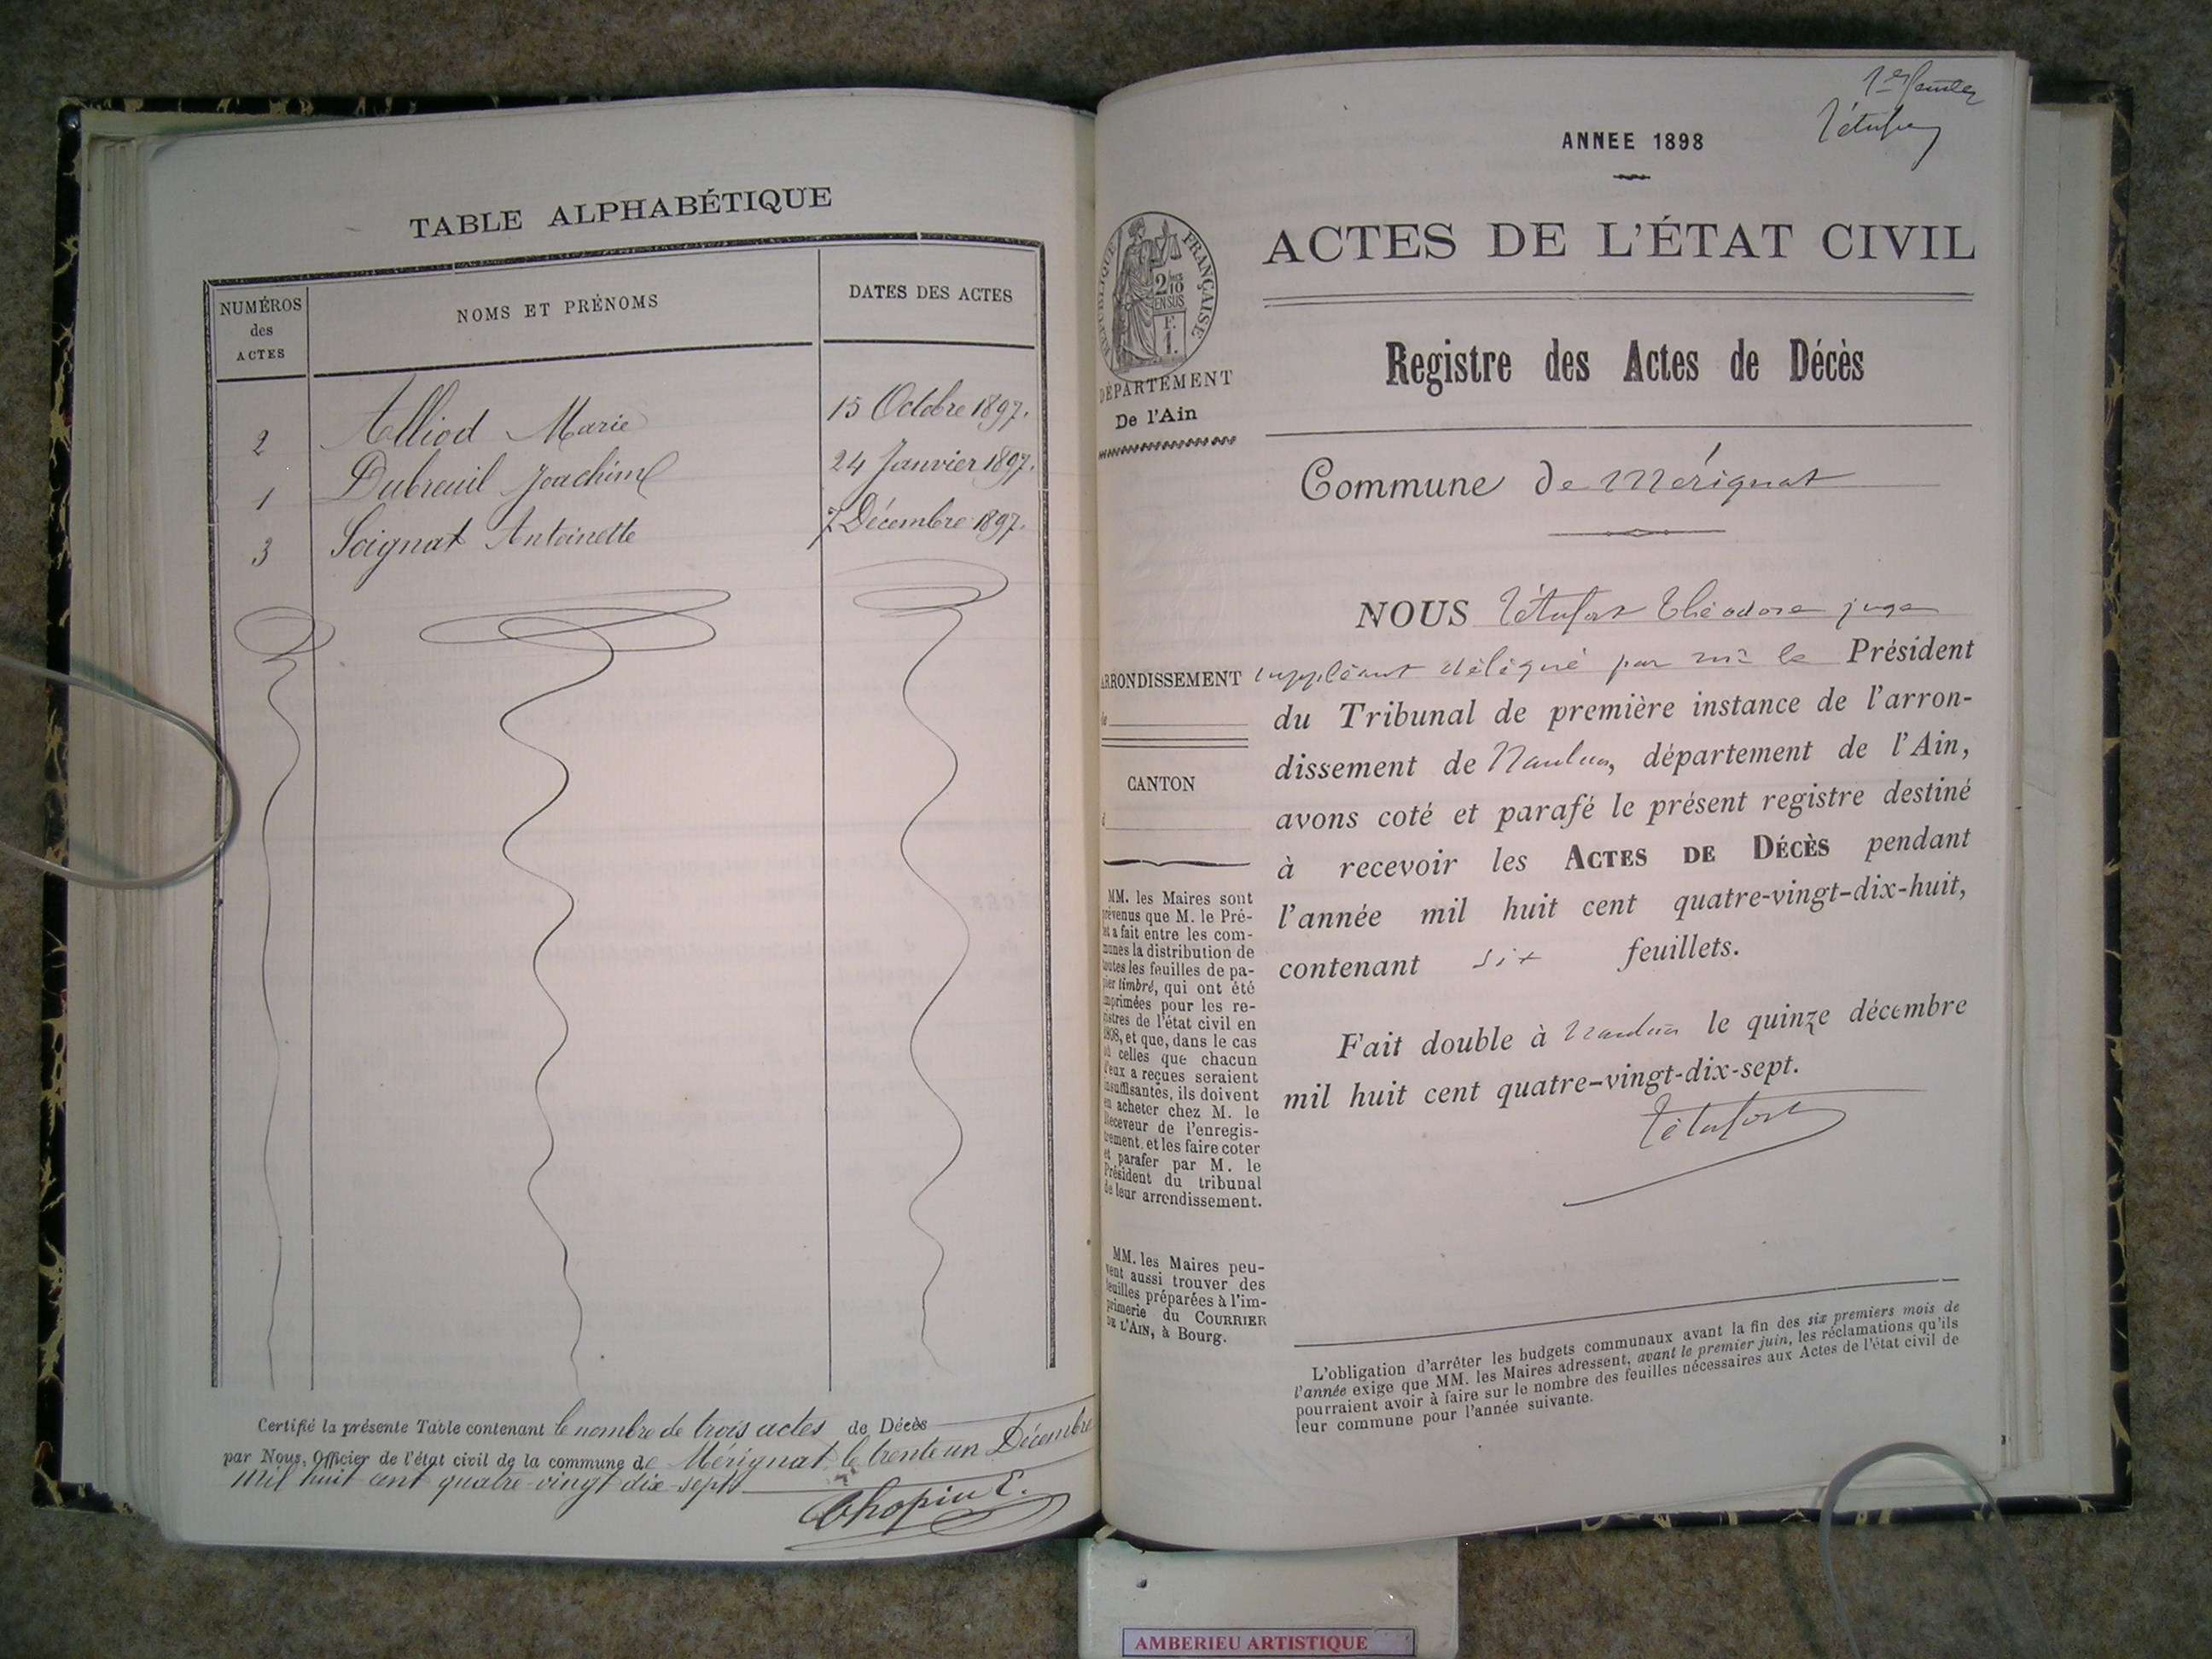 TABLE ALPHABÉTIQUE
NUMÉROS
des
ACTES
NOMS ET PRÉNOMS
DATES DES ACTES
2 Alliod Marie 15 Octobre 1897.
1 Dubreuil Joachim 24 Janvier 1897.
3 Soignat Antoinette 7 Décembre 1897.
Certifié la présente Table contenant le nombre de trois actes de Décès
par Nous, Officier de l'état civil de la commune de Mérignat le trente un Décembre
mil huit cent quatre vingt dix sept
Chopin E.
1er
ANNEE 1898
ACTES DE L'ÉTAT CIVIL
RÉPUBLIQUE FRANÇAISE
2/10
EN SUS
F.
1.
DÉPARTEMENT
De l'Ain
Registre des Actes de Décès
Commune de Mérignat
NOUS Tétafort Théodore juge
suppléant délégué par mr le Président
du Tribunal de première instance de l'arron-
dissement de Nantua, département de l'Ain,
avons coté et parafé le présent registre destiné
à recevoir les ACTES DE DÉCÈS pendant
l'année mil huit cent quatre-vingt-dix-huit,
contenant six feuillets.
Fait double à Nantua le quinze décembre
mil huit cent quatre-vingt-dix-sept.
Tétafort
ARRONDISSEMENT
de
CANTON
d
MM. les Maires sont
prévenus que M. le Pré-
fet a fait entre les com-
munes la distribution de
toutes les feuilles de pa-
pier timbré, qui ont été
imprimées pour les re-
gistres de l'état civil en
1898, et que, dans le cas
où celles que chacun
d'eux a reçues seraient
insuffisantes, ils doivent
en acheter chez M. le
Receveur de l'enregis-
trement, et les faire coter
et parafer par M. le
Président du tribunal
de leur arrondissement.
MM. les Maires peu-
vent aussi trouver des
feuilles préparées à l'im-
primerie du COURRIER
DE L'AIN, à Bourg.
L'obligation d'arrêter les budgets communaux avant la fin des six premiers mois de
l'année exige que MM. les Maires adressent, avant le premier juin, les réclamations qu'ils
pourraient avoir à faire sur le nombre des feuilles nécessaires aux Actes de l'état civil de
leur commune pour l'année suivante.
AMBERIEU ARTISTIQUE